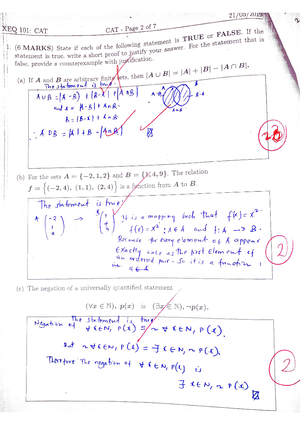 21/05/20
XEQ 101: CAT CAT - Page 2 of 7
1. (6 MARKS) State if each of the following statement is TRUE or FALSE. If the
statement is true, write a short proof to justify your answer. For the statement that is
false, provide a counterexample with justification.
(a) If A and B are arbitrary finite sets, then |A ∪ B| = |A| + |B| − |A ∩ B|.
The statement is true.
A∪B = |A-B| + |B-A| + |A∩B|
A = |A-B| + A∩B
B = |B-A| + A∩B
∴ A∪B = |A| + |B| - |A∩B|
(b) For the sets A = {-2, 1, 2} and B = {1, 4, 9}. The relation
f = {(-2, 4), (1, 1), (2, 4)} is a function from A to B.
The statement is true:
It is a mapping such that f(x) = x².
f(x) = x² : x∈A and f: A → B.
Because for every element of A appears
exactly once as the first element of
an ordered pair. So it is a function
2
(c) The negation of a universally quantified statement
(∀x ∈ ℕ), p(x) is (∃x ∈ ℕ), ¬p(x).
The statement is true
Negation of ∀x∈N, P(x) = ~ ∀x∈N, P(x).
But ~∀x∈N, P(x) = ∃x∈N, ~P(x).
Therefore The negation of ∀x∈N, P(x) is
∃x∈N, ~P(x)
2